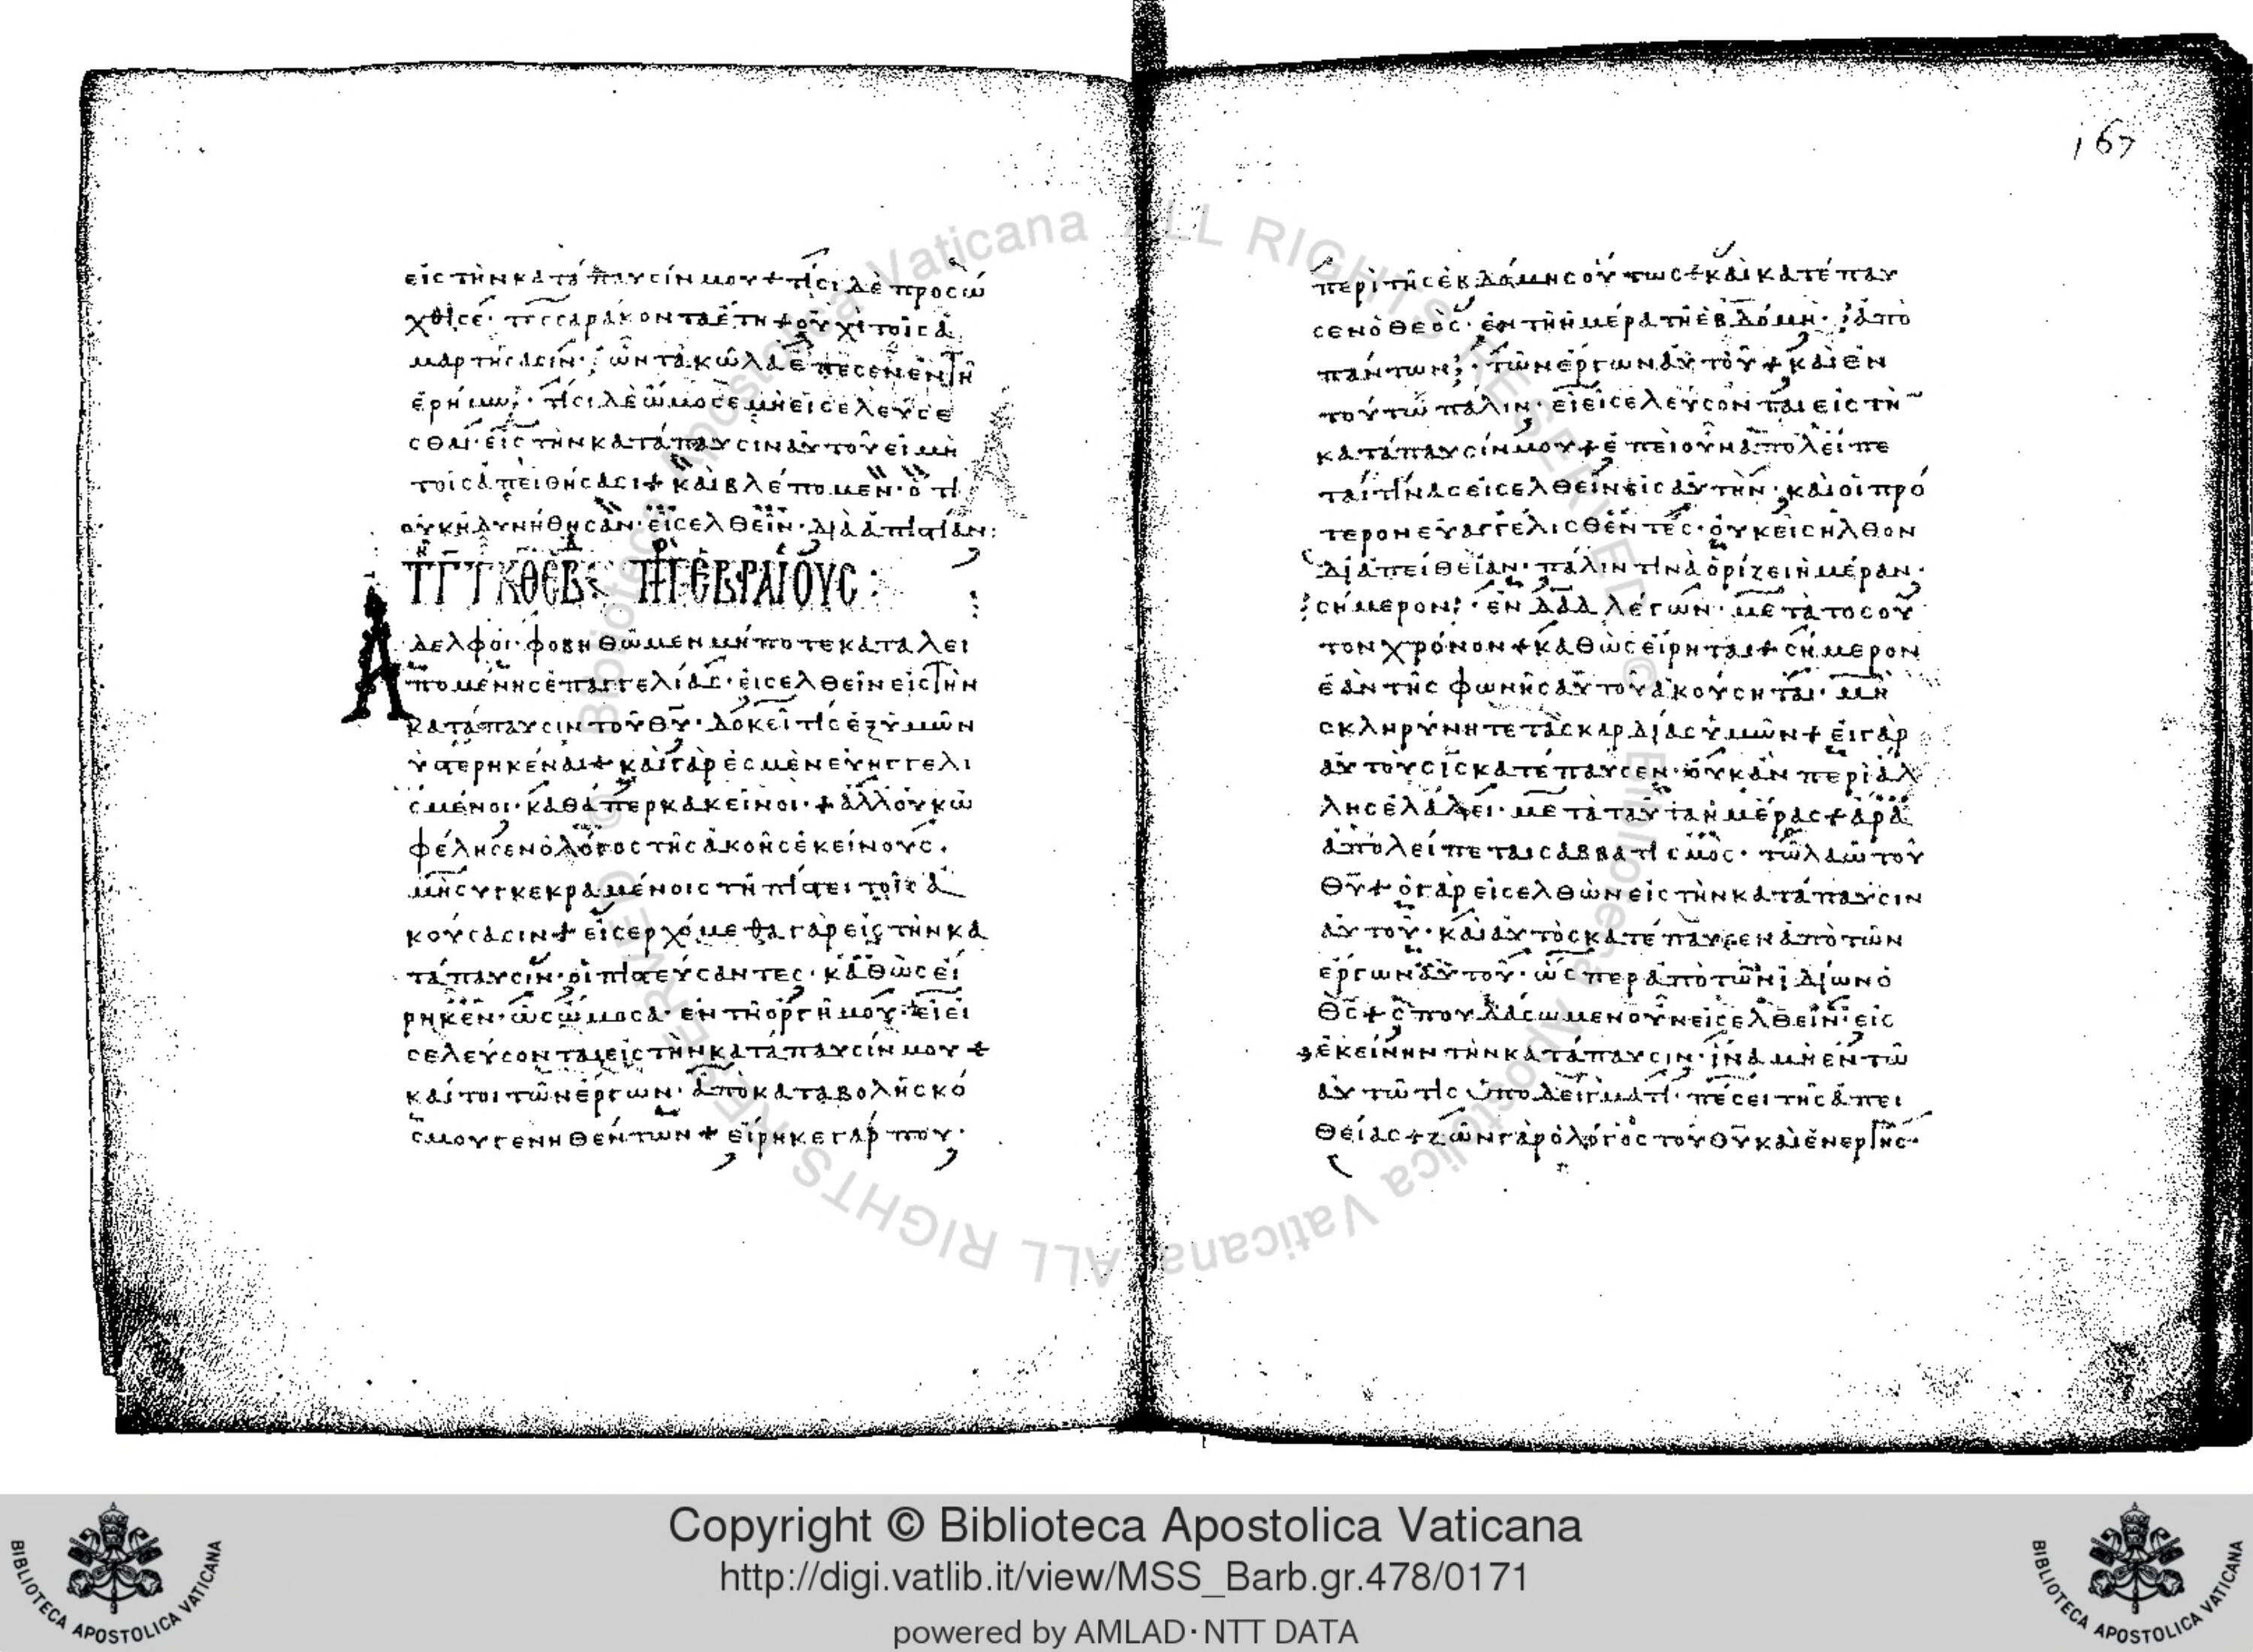 εἰς τὴν κατάπαυσίν μου + τίσι δὲ προσώ
χθισε· τεσσαράκοντα ἔτη + οὐχὶ τοῖς ἁ
μαρτήσασιν· ὧν τὰ κῶλα ἔπεσεν ἐν τῆ
ἐρήμω· τίσι δὲ ὤμοσε μὴ εἰσελεύσε
σθαι· εἰς τὴν κατάπαυσιν αὐτοῦ εἰ μὴ
τοῖς ἀπειθήσασι + καὶ βλέπομεν· ὅτι
οὐκ ἠδυνήθησαν· εἰσελθεῖν· διὰ ἀπιστίαν:
ἑβραίους:
Ἀδελφοί· φοβηθῶμεν μήποτε καταλει
πομένης ἐπαγγελίας· εἰσελθεῖν εἰς τὴν
κατάπαυσιν τοῦ θῦ· δοκεῖ τίς ἐξ ὑμῶν
ὑστερηκέναι + καὶ γὰρ ἐσμὲν εὐηγγελι
σμένοι· καθάπερ κακείνοι· + ἀλλ οὐκ ὠ
φέλησεν ὁ λόγος τῆς ἀκοῆς ἐκείνους·
μὴ συγκεκραμένοις τῆ πίστει τοῖς ἀ
κούσασιν + εἰσερχόμεθα γὰρ εἰς τὴν κα
τάπαυσιν· οἱ πιστεύσαντες· καθὼς εἴ
ρηκεν· ὡς ὤμοσα· ἐν τῆ ὀργῆ μου· εἰ εἰ
σελεύσονται εἰς τὴν κατάπαυσίν μου +
καίτοι τῶν ἔργων· ἀπὸ καταβολῆς κό
σμου γενηθέντων + εἴρηκε γάρ που·
167
περὶ τῆς ἑβδόμης οὕτως + καὶ κατέπαυ
σεν ὁ θεὸς· ἐν τῆ ἡμέρα τῆ ἑβδόμη· ἀπὸ
πάντων· τῶν ἔργων αὐτοῦ + καὶ ἐν
τούτω πάλιν· εἰ εἰσελεύσονται εἰς τὴ
κατάπαυσίν μου + ἐπεὶ οὖν ἀπολείπε
ται τινὰς εἰσελθεῖν εἰς αὐτὴν· καὶ οἱ πρό
τερον εὐαγγελισθέντες· οὐκ εἰσῆλθον
δι ἀπείθειαν· πάλιν τινὰ ὁρίζει ἡμέραν·
σήμερον· ἐν δαδ λέγων· μετὰ τοσοῦ
τον χρόνον + καθὼς εἴρηται + σήμερον
ἐὰν τῆς φωνῆς αὐτοῦ ἀκούσηται· μὴ
σκληρύνητε τὰς καρδίας ὑμῶν + εἰ γὰρ
αὐτοὺς ἰς κατέπαυσεν· οὐκ ἂν περὶ ἄλ
λης ἐλάλει· μετὰ ταῦτα ἡμέρας + ἄρα
ἀπολείπεται σαββατισμὸς· τῶ λαῶ τοῦ
θῦ + ὁ γὰρ εἰσελθὼν εἰς τὴν κατάπαυσιν
αὐτοῦ· καὶ αὐτὸς κατέπαυσεν ἀπὸ τῶν
ἔργων αὐτοῦ· ὥσπερ ἀπὸ τῶν ἰδίων ὁ
θς + σπουδάσωμεν οὖν εἰσελθεῖν· εἰς
ἐκείνην τὴν κατάπαυσιν· ἵνα μὴ ἐν τῶ
αὐτῶ τὶς ὑποδείγματι· πέσει τῆς ἀπει
θείας + ζῶν γὰρ ὁ λόγος τοῦ θῦ καὶ ἐνεργὴς·
Copyright © Biblioteca Apostolica Vaticana
http://digi.vatlib.it/view/MSS_Barb.gr.478/0171
powered by AMLAD·NTT DATA
BIBLIOTECA APOSTOLICA VATICANA
BIBLIOTECA APOSTOLICA VATICANA